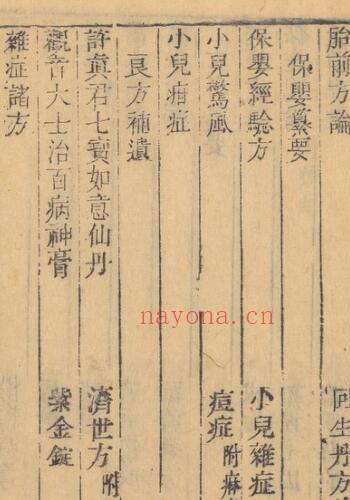 胎前方論
回生丹方
保嬰纂要
保嬰經驗方
小兒雜症
小兒驚風
痘症 附痳
小兒疳症
良方補遺
許真君七寶如意仙丹
濟世方 附
觀音大士治百病神膏
紫金錠
雜症諸方
nayona.cn